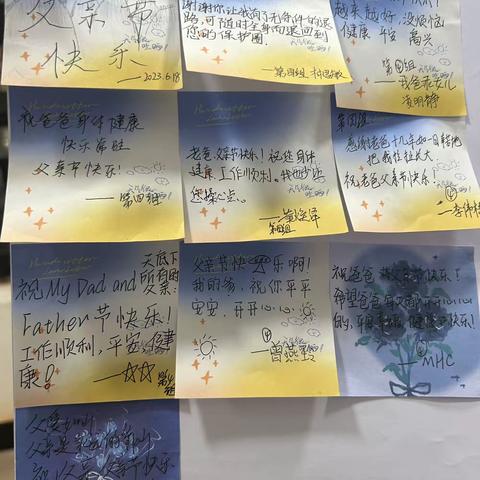 父亲节
快乐
2023.6.18
谢谢你让我有了无条件的退
路,可随时全身而退回到
您的保护圈.
——第四组
越来越好,没烦恼
健康 平安 高兴
第④组
祝爸爸身体健康
快乐常旺
父亲节快乐!
——第四组
老爸,父亲节快乐!祝您身体
健康,工作顺利。
第四组
第四组
感谢老爸十几年如一日
把我拉扯长大
祝老爸父亲节快乐!
④
祝My Dad and
天底下
所有的
父亲:
Father节快乐!
工作顺利,平安健
康!
——☆☆
父亲节快乐啊!
我的爸,祝你平平
安安,开开心心
④
——曾燕
祝爸爸 父亲节快乐!
希望爸爸每天都开开心心
的,平安幸福,健康快乐!
④
—MHC
父爱如山
父亲是
祝父亲 父亲节快乐